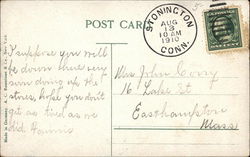 POST CARD
STONINGTON
AUG
13
10 AM
1910
CONN.
I suppose you will
be down here very
soon doing up the
stores, hope you don't
get as tired as we
did.
Mrs. John
16 Lake St
Easthampton
Mass